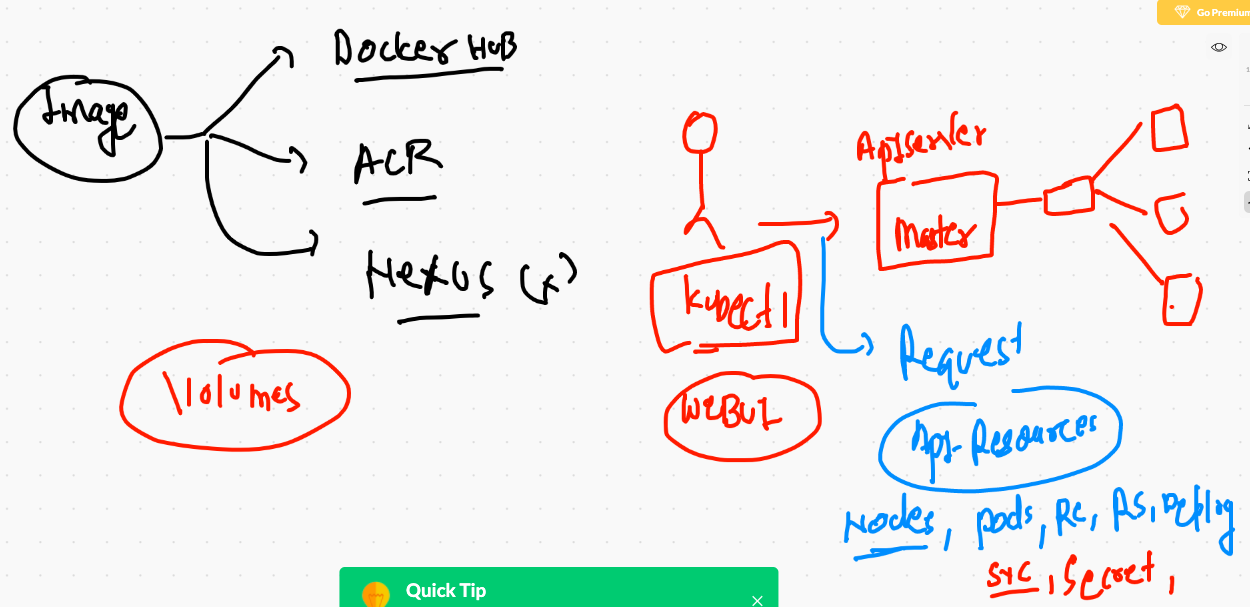 Go Premium
Docker HUB
Image
ACR
Nexus (x)
Volumes
Apiserver
Master
Kubectl
WEBUI
Request
Api-Resources
Nodes, pods, RC, RS, Deploy
svc, Secret,
Quick Tip